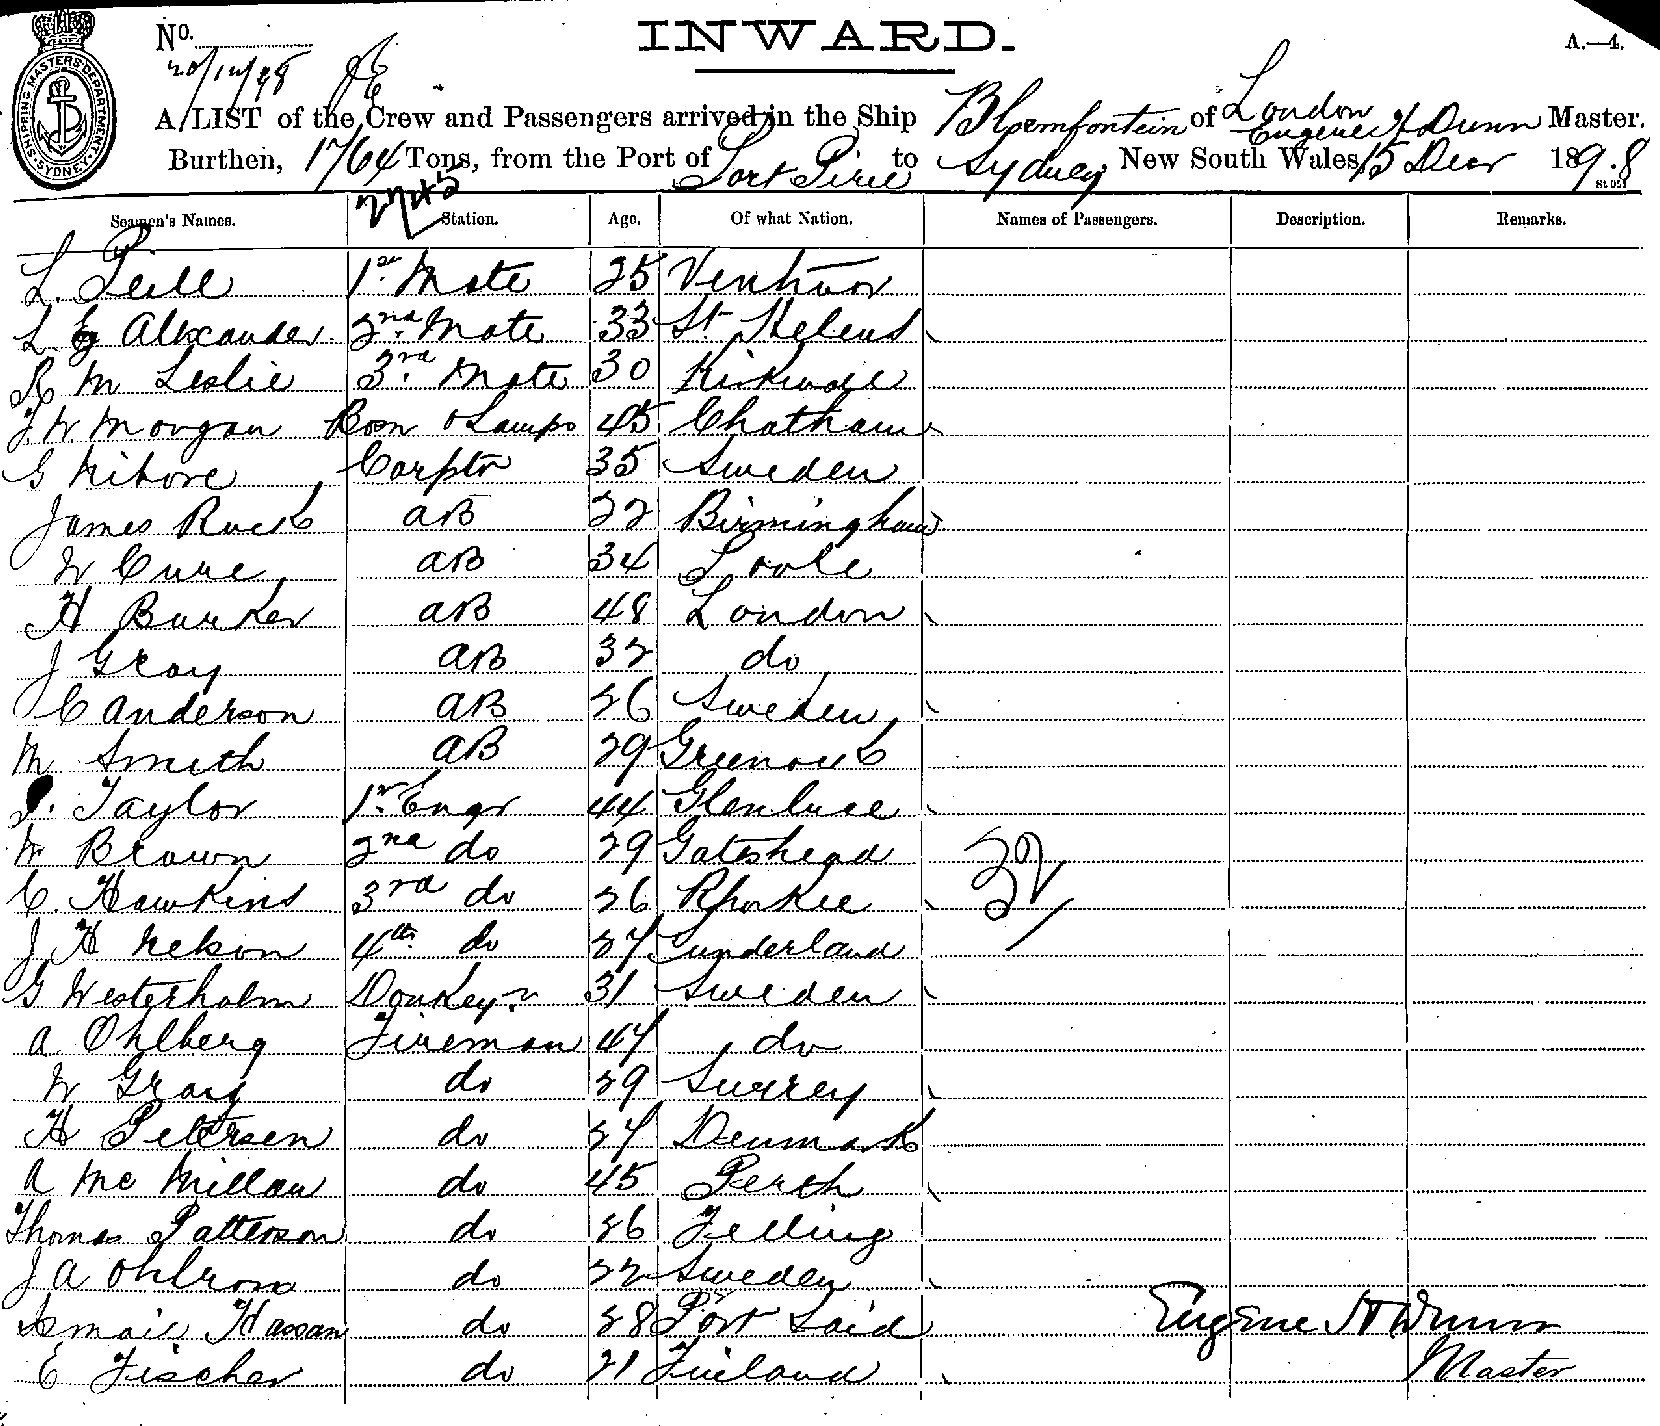 No.
INWARD.
A.—4.
20/12/98
SHIPPING MASTERS DEPARTMENT. SYDNEY
A LIST of the Crew and Passengers arrived in the Ship Bloemfontein of London Eugene H Dunn Master.
Burthen, 1764 Tons, from the Port of Port Pirie to Sydney New South Wales 15 Decr 1898
Seamen's Names. Station. Age. Of what Nation. Names of Passengers. Description. Remarks.
L. Peill 1st Mate 25 Ventnor
L. Alexander 2nd Mate 33 St Helens
M Leslie 3rd Mate 30 Kirkwall
J W Morgan Bosn & Lamps 45 Chatham
G Carptr 35 Sweden
James Rock AB 22 Birmingham
W AB 34 Poole
H Barker AB 48 London
J Gray AB 32 do
C Anderson AB 26 Sweden
M Smith AB 29 Greenock
J. Taylor 1st Engr 44 Glenluce
W Brown 2nd do 29 Gateshead
C. Hawkins 3rd do 26
J H Nelson 4th do 27 Sunderland
G Westerholm Donkeyn 31 Sweden
A Ohlberg Fireman 47 do
W Gray do 29 Surrey
H Petersen do 27 Denmark
A Mc Millan do 45 Perth
Thomas Patterson do 26 Felling
J A Ohlrom do 22 Sweden
Ismail Hassan do 28 Port Said
E Fischer do 21 Finland
32/
Eugene H Dunn
Master